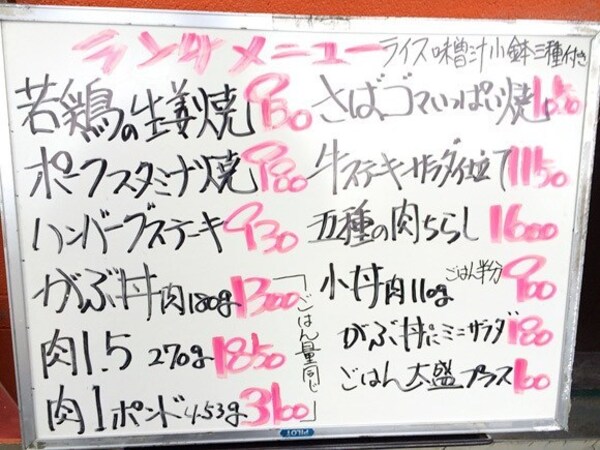 ランチメニュー ライス味噌汁小鉢三種付き
若鶏の生姜焼 930
ポークスタミナ焼 980
ハンバーグステーキ 930
がぶ丼 肉180g 1300
肉1.5 270g 1850
肉1ポンド 453g 3160
「ごはん量同じ」
さばゴマいっぱい焼 1050
牛ステーキサラダ仕立て 1150
五種の肉ちらし 1600
小丼 肉110g ごはん半分 900
がぶ丼にミニサラダ 180
ごはん大盛プラス 160
PILOT